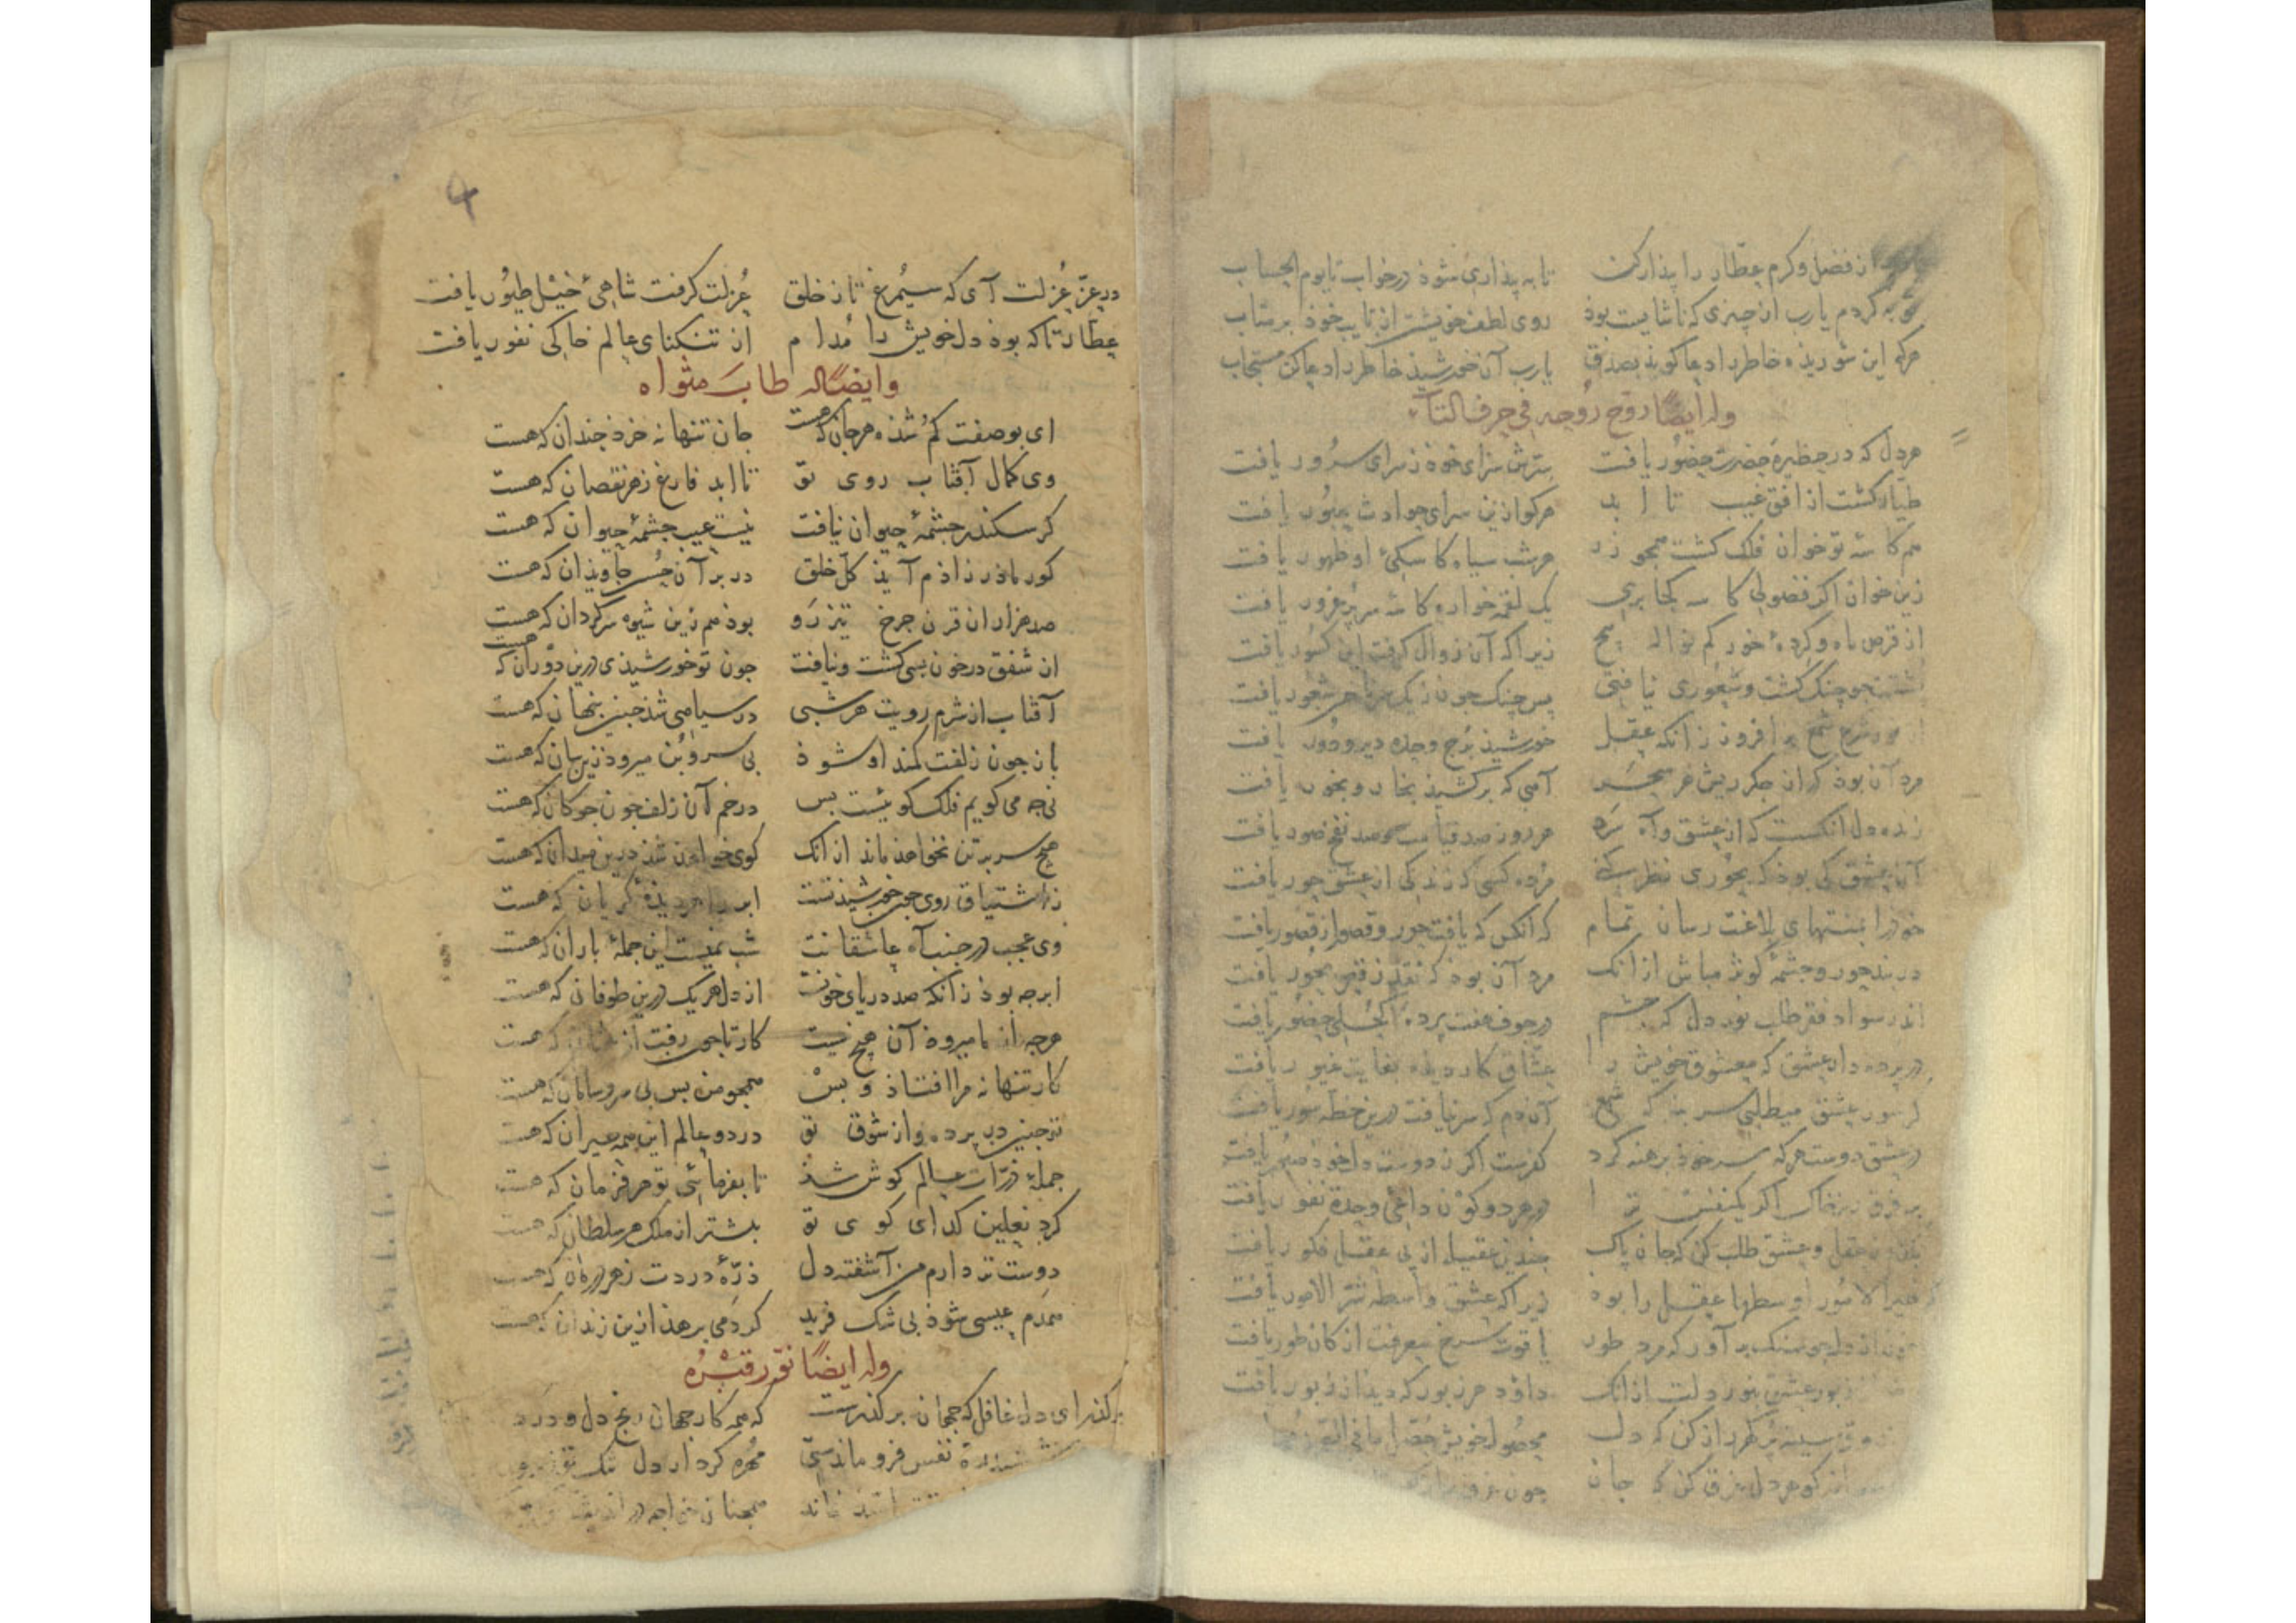 از فضل و کرم عطار را بیذار کن تا به بیذاری شوذ در خواب تا یوم الحساب
توبه کردم یارب از چیزی که ناشایست بوذ روی لطف خویشتن از تایب خوذ بر متاب
هرکه این شوریذه خاطر را دعا گویذ بصدق یارب آن خورشیذ خاطر را دعا کن مستجاب
وله ایضًا روّح روحه فی حرف التآء
هر دل که در حظیرهٔ حضرت حضور یافت سرّش سزای خوذ ز سرای سرور یافت
طیار گشت از افق غیب تا ابد هرکو ازین سرای حوادث عبور یافت
هم کاسهٔ تو خوان فلک گشت همجو زر هر شب سیاه کاسکیٔ او ظهور یافت
زین خوان اکر فضولی کاسه کجا بری یک لقمه خواره کاسهٔ سر پر غرور یافت
از قرص ماه و کردهٔ خور کم نواله بیج زیرا که آن زوال کرفت این کسور یافت
جو چنک کشت و شعوری نیافتی بس چنک جون ز یک
شرع شمع بر افروز زانکه عقل خورشیذ برج وحدة دیر و دور یافت
مرد آن بوذ که از جکر ریش هر سحر آهی که برکشیذ بخار و بخور یافت
زنده دل انکست که از عشق و آه سرد هر روز صد قیامت و صد نفخ صور یافت
آن عشق کی بوذ که بحوری نظر کنی مرده کسی که زندکی از عشق حور یافت
خود را بمنتهای بلاغت رسان تمام که انکس که یافت حور و قصور از قصور یافت
در بند حور و چشمهٔ کوثر مباش از انک مرد آن بوذ که نقد ز
اندر سواد فقر طلب نور دل که چشم در جوف هفت پرده تجلی حضور یافت
در پرده دار عشق که معشوق خویش را عشاق کار دیده بغایت غیور یافت
کر سور عشق میطلبی سر بنه که شمع آن دم که سر نیافت درین خطه سور یافت
در عشق دوست هرکه سر خوذ برهنه کرد کفرست اکر ز دوست دل خوذ صبور یافت
بر فرق ریز خاک اکر یکنفس ترا در هر دو کون داعیٔ وحدة نفور یافت
عقل و عشق طلب کن که جان پاک جندین عقیله از بی عقل فکور یافت
خیر الامور اوسطها عقل را بوذ زیرا که عشق واسطه شرّ الامور یافت
از دل جو سنک بر آور که مرد طور یاقوت سرخ معرفت از کان طور یافت
زبور عشق بنور دلت از انک داوٓد هر زبور که دید از زبور یافت
سینه بر کهر از کن که دل محصول خویش حصّل ما فی الصدور
کوهر دل غرق کن که جان جون غرق
۴
در عزّ عزلت آی که سیمرغ تا ز خلق عزلت کرفت شاهیٔ خیل طیور یافت
عطار تا که بوذ دل خویش را مدام از تنکنای عالم خاکی نفور یافت
وایضًا له طابَ مثواه
ای بوصفت کم شذه هر جان که هست جان تنها نه خرذ جندان که هست
وی کمال آفتاب روی تو تا ابد فارغ ز هر نقصان که هست
کر سکندر جشمهٔ حیوان نیافت نیست عیب جشمهٔ حیوان که هست
کور مادرزاذم آیذ کل خلق در بر آن حسن جاویذان که هست
صد هزاران قرن جرخ تیزرَو بوذ هم زین شیوه سرکردان که هست
از شفق در خون بسی کشت و نیافت جون تو خورشیذی درین دوران که هست
آفتاب از شرم رویت هر شبی در سیاهی شذ جنین بنهان که هست
باز جون زلفت کمند او شوذ بی سر و بُن میروذ زین سان که هست
نی جه می کویم فلک کوئیست بس در خم آن زلف جون جوکان که هست
هیج سر بر تن نخواهذ ماند از انک کوی خواهذ شذ درین میدان که هست
ز اشتیاق روی جون خورشیذ تست ابر را هر دیذهٔ کریان که هست
وی عجب در جنب آه عاشقانت شب نمیست این جملهٔ باران که هست
ابر جه بوذ زانکه صد دریای خونست از دل هر یک درین طوفان که هست
هرجه از ما میروذ آن هیج نیست کار تا جی رفت از که هست
کار تنها نه مرا افتاذ و بس همجو من بس بی سر و سامان که هست
تو جنین در پرده و از شوق تو در دو عالم این همه حیران که هست
جملهٔ ذرّات عالم کوش شذ تا بفرمائی تو هر فرمان که هست
کرد نعلین کدای کوی تو بیشتر از ملک هر سلطان که هست
دوست تر دارم من آشفته دل ذرّهٔ دردت ز هر درمان که هست
همدم عیسی شوذ بی شک فرید کر دمی برهذ ازین زندان که هست
وله ایضًا نوّر قبرُه
برکذر ای دل غافل که جهان برکذرست که همه کار جهان رنج دل و درد
ششدرهٔ نفس فرو ماندستی مهره کردار دل تنک تو
همجنان خواجه در اندیشه